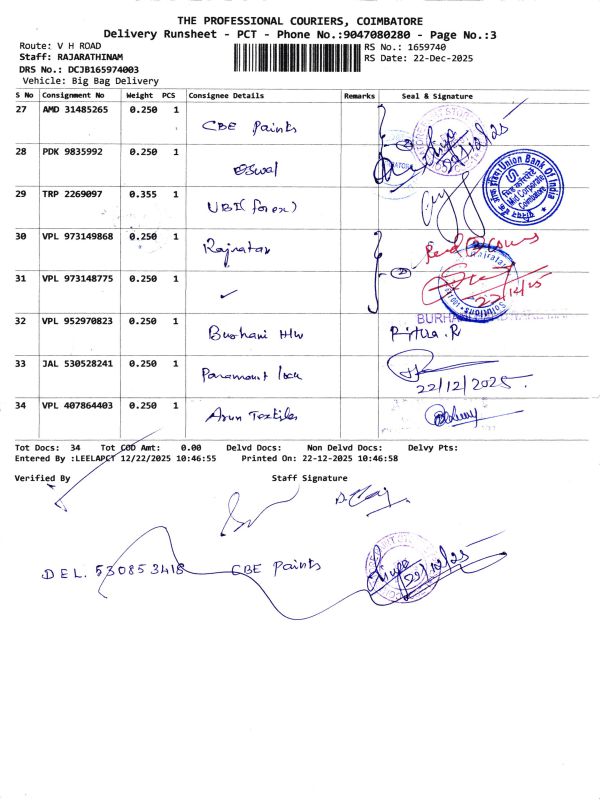 THE PROFESSIONAL COURIERS, COIMBATORE
Delivery Runsheet - PCT - Phone No.:9047080280 - Page No.:3
Route: V H ROAD
RS No.: 1659740
Staff: RAJARATHINAM
RS Date: 22-Dec-2025
DRS No.: DCJB165974003
Vehicle: Big Bag Delivery
S No Consignment No Weight PCS Consignee Details Remarks Seal & Signature
27 AMD 31485265 0.250 1 CBE Paints
22/12/25
28 PDK 9835992 0.250 1
Union Bank Of India
Mid Corporate
Coimbatore
29 TRP 2269097 0.355 1 UBI (forex)
30 VPL 973149868 0.250 1 Rajratan
31 VPL 973148775 0.250 1 ✓
22/12/25
Solutions
32 VPL 952970823 0.250 1 Burhani H/w
33 JAL 530528241 0.250 1 Paramount lock
22/12/2025.
34 VPL 407864403 0.250 1 Arun Textiles
Tot Docs: 34 Tot COD Amt: 0.00 Delvd Docs: Non Delvd Docs: Delvy Pts:
Entered By :LEELAPCT 12/22/2025 10:46:55 Printed On: 22-12-2025 10:46:58
Verified By Staff Signature
DEL. 530853418 CBE Paints
22/12/25